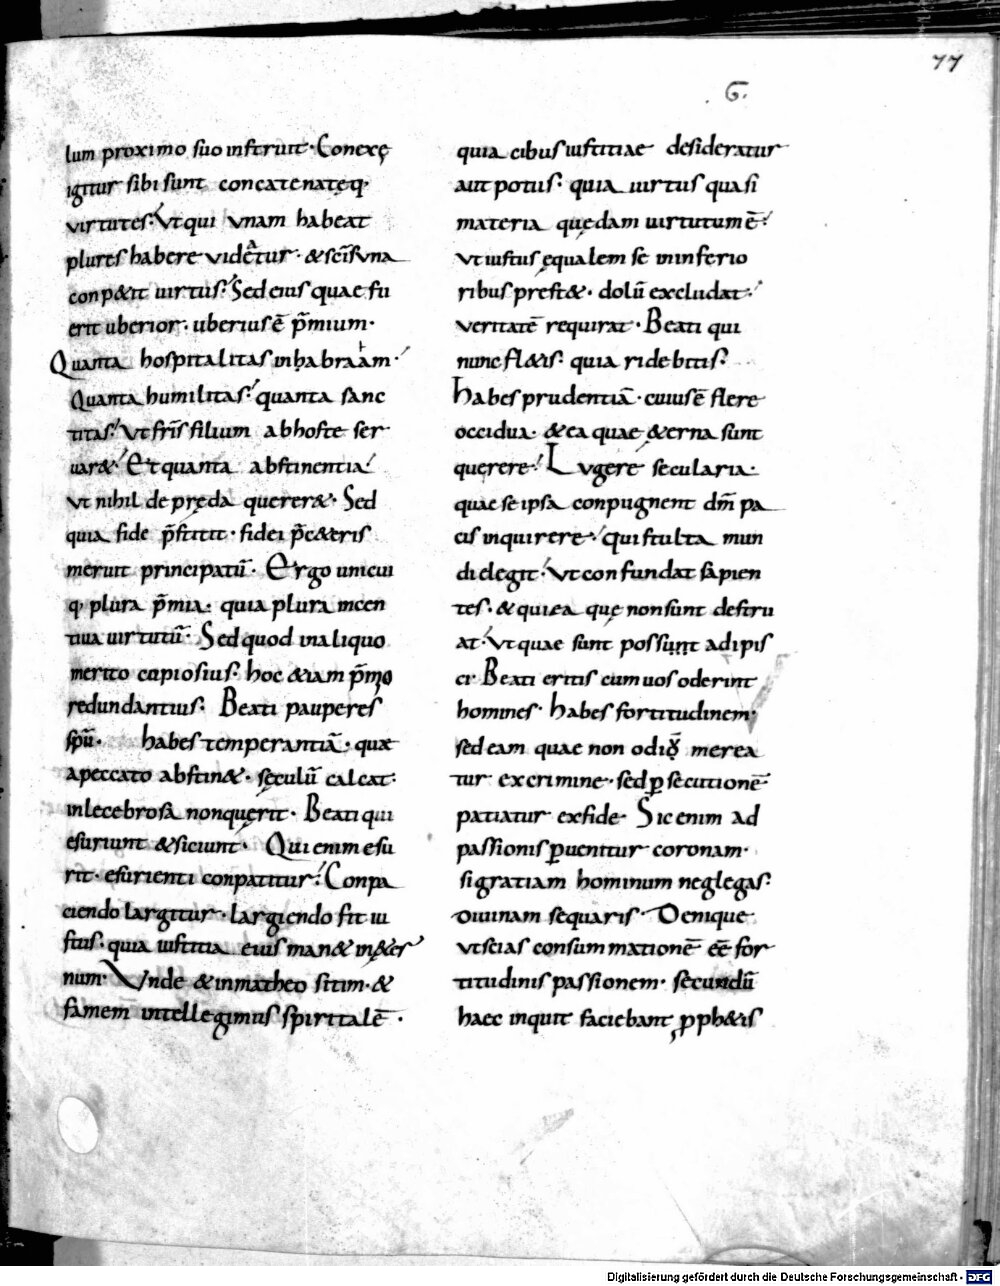 77
G.
lum proximo suo instruit· Conexę
igitur sibi sunt concatenatęq·
virtutes· Ut qui unam habeat
plures habere videatur· & sc̄is una
conp&it uirtus· Sed eius quae fu
erit uberior· uberius ē p̄mium·
Quanta hospitalitas in habraam·
Quanta humilitas· quanta sanc
titas· Ut fr̄is filium ab hoste ser
uar&· Et quanta abstinentia
ut nihil de pręda querer&· Sed
quia fide p̄stitit· fidei p̄c&eris
meruit principatū· Ergo unicui
q· plura p̄mia· quia plura incen
tiua uirtutū· Sed quod in aliquo
merito cupiosius· hoc &iam p̄mio
redundantius· Beati pauperes
spū· habes temperantiā· quae
a peccato abstin&· sęculū calcat·
inlecebrosa non querit· Beati qui
esuriunt & siciunt· Qui enim esu
rit· esurienti conpatitur· Conpa
ciendo largitur· largiendo fit iu
stus· quia iustitia eius man& in &er
num· Unde & in matheo sitim· &
famem intellegimus spiritalē·
quia cibus iustitiae desideratur
aut potus· quia uirtus quasi
materia quędam uirtutum ē·
ut iustus ęqualem se in inferio
ribus prest&· dolū excludat·
veritatē requirat· Beati qui
nunc fl&is· quia ridebitis·
Habes prudentiā· cuius ē flere
occidua· & ea quae &erna sunt
querere· Lugere secularia·
quae se ipsa conpugnent dm̄ pa
cis inquirere· qui stulta mun
di elegit· Ut confundat sapien
tes· & qui ea quę non sunt destru
at· Ut quae sunt possunt adipis
ci· Beati eritis cum uos oderint
homines· habes fortitudinem·
sed eam quae non odiū merea
tur ex crimine· sed p̱secutionē
patiatur ex fide· Sic enim ad
passionis p̱uenitur coronam·
si gratiam hominum neglegas·
diuinam sequaris· Denique
ut scias consummationē eē for
titudinis passionem· secundū
haec inquit faciebant p̱ph&is
Digitalisierung gefördert durch die Deutsche Forschungsgemeinschaft - DFG